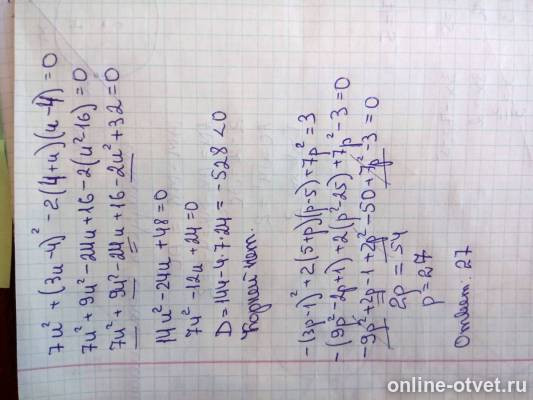 7u² + (3u-4)² - 2(4+u)(u-4) = 0
7u² + 9u² - 24u + 16 - 2(u²-16) = 0
7u² + 9u² - 24u + 16 - 2u² + 32 = 0
14u² - 24u + 48 = 0
7u² - 12u + 24 = 0
D = 144 - 4·7·24 = -528 < 0
Корней нет.
-(3p-1)² + 2(5+p)(p-5) + 7p² = 3
-(9p² - 2p + 1) + 2(p² - 25) + 7p² - 3 = 0
-9p² + 2p - 1 + 2p² - 50 + 7p² - 3 = 0
2p = 54
p = 27
Ответ: 27
online-otvet.ru